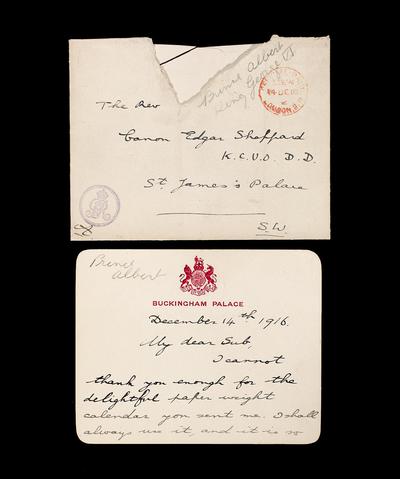 Prince Albert
King George VI
14 DE 16
LONDON
The Rev
Canon Edgar Sheppard
K.C.V.O. D.D.
St. James's Palace
S.W.
Prince
Albert
BUCKINGHAM PALACE
December 14th 1916.
My dear Sub,
I cannot
thank you enough for the
delightful paper weight
calendar you sent me. I shall
always use it, and it is so